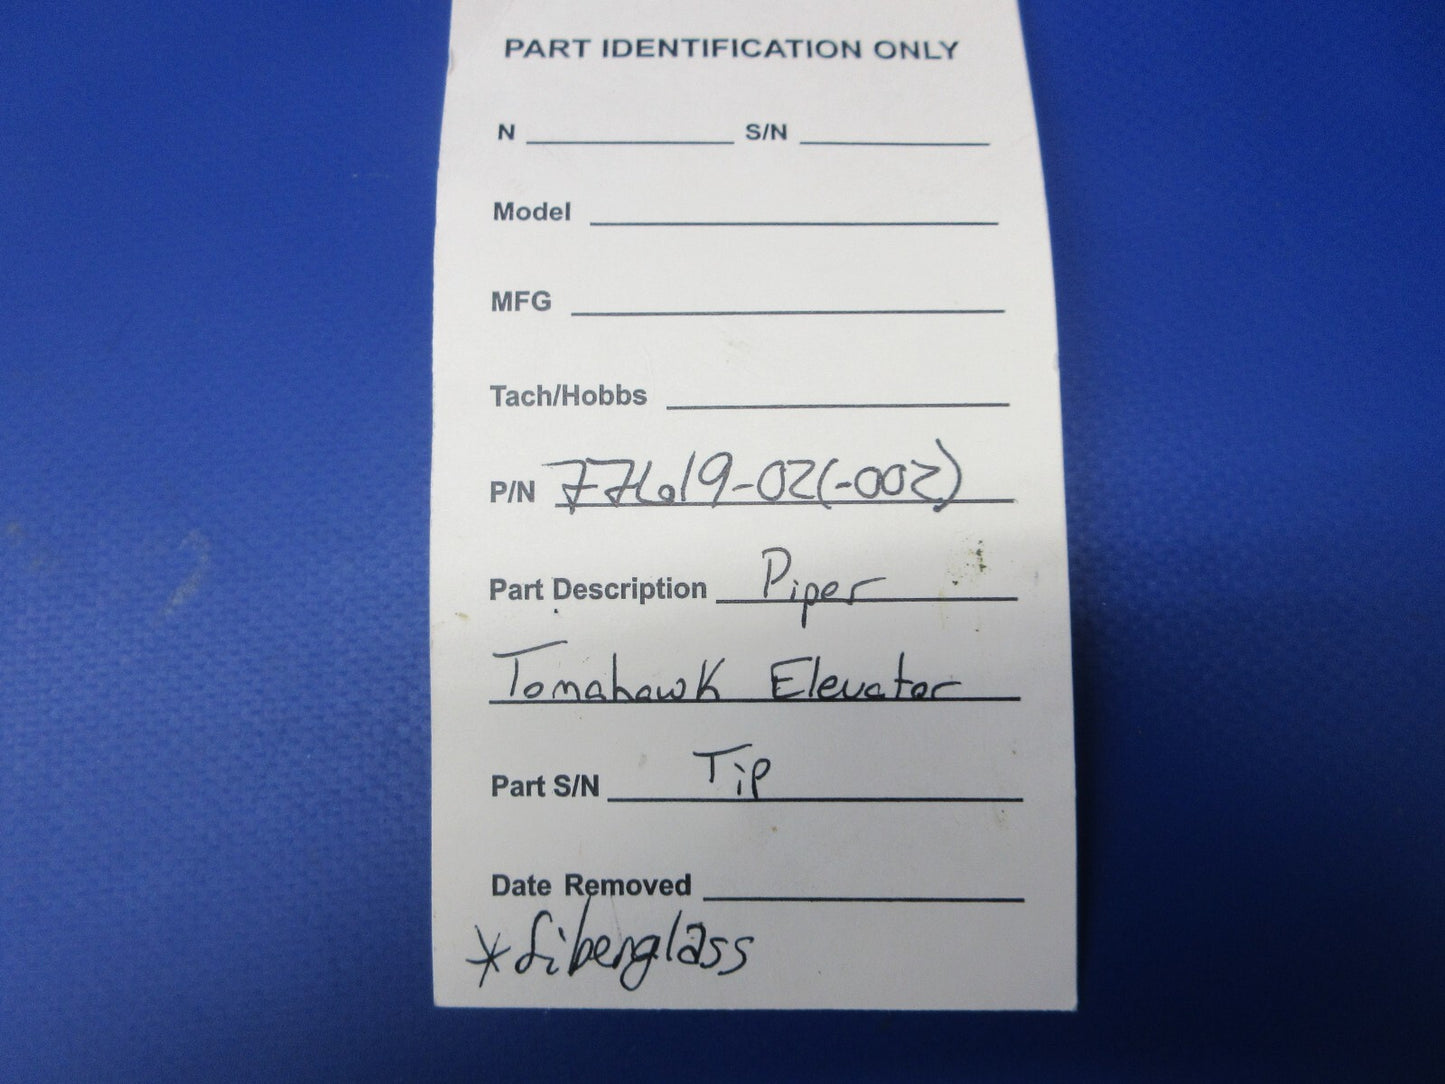 PART IDENTIFICATION ONLY
N S/N
Model
MFG
Tach/Hobbs
P/N 77619-02(-002)
Part Description Piper
Tomahawk Elevator
Part S/N Tip
Date Removed
*fiberglass